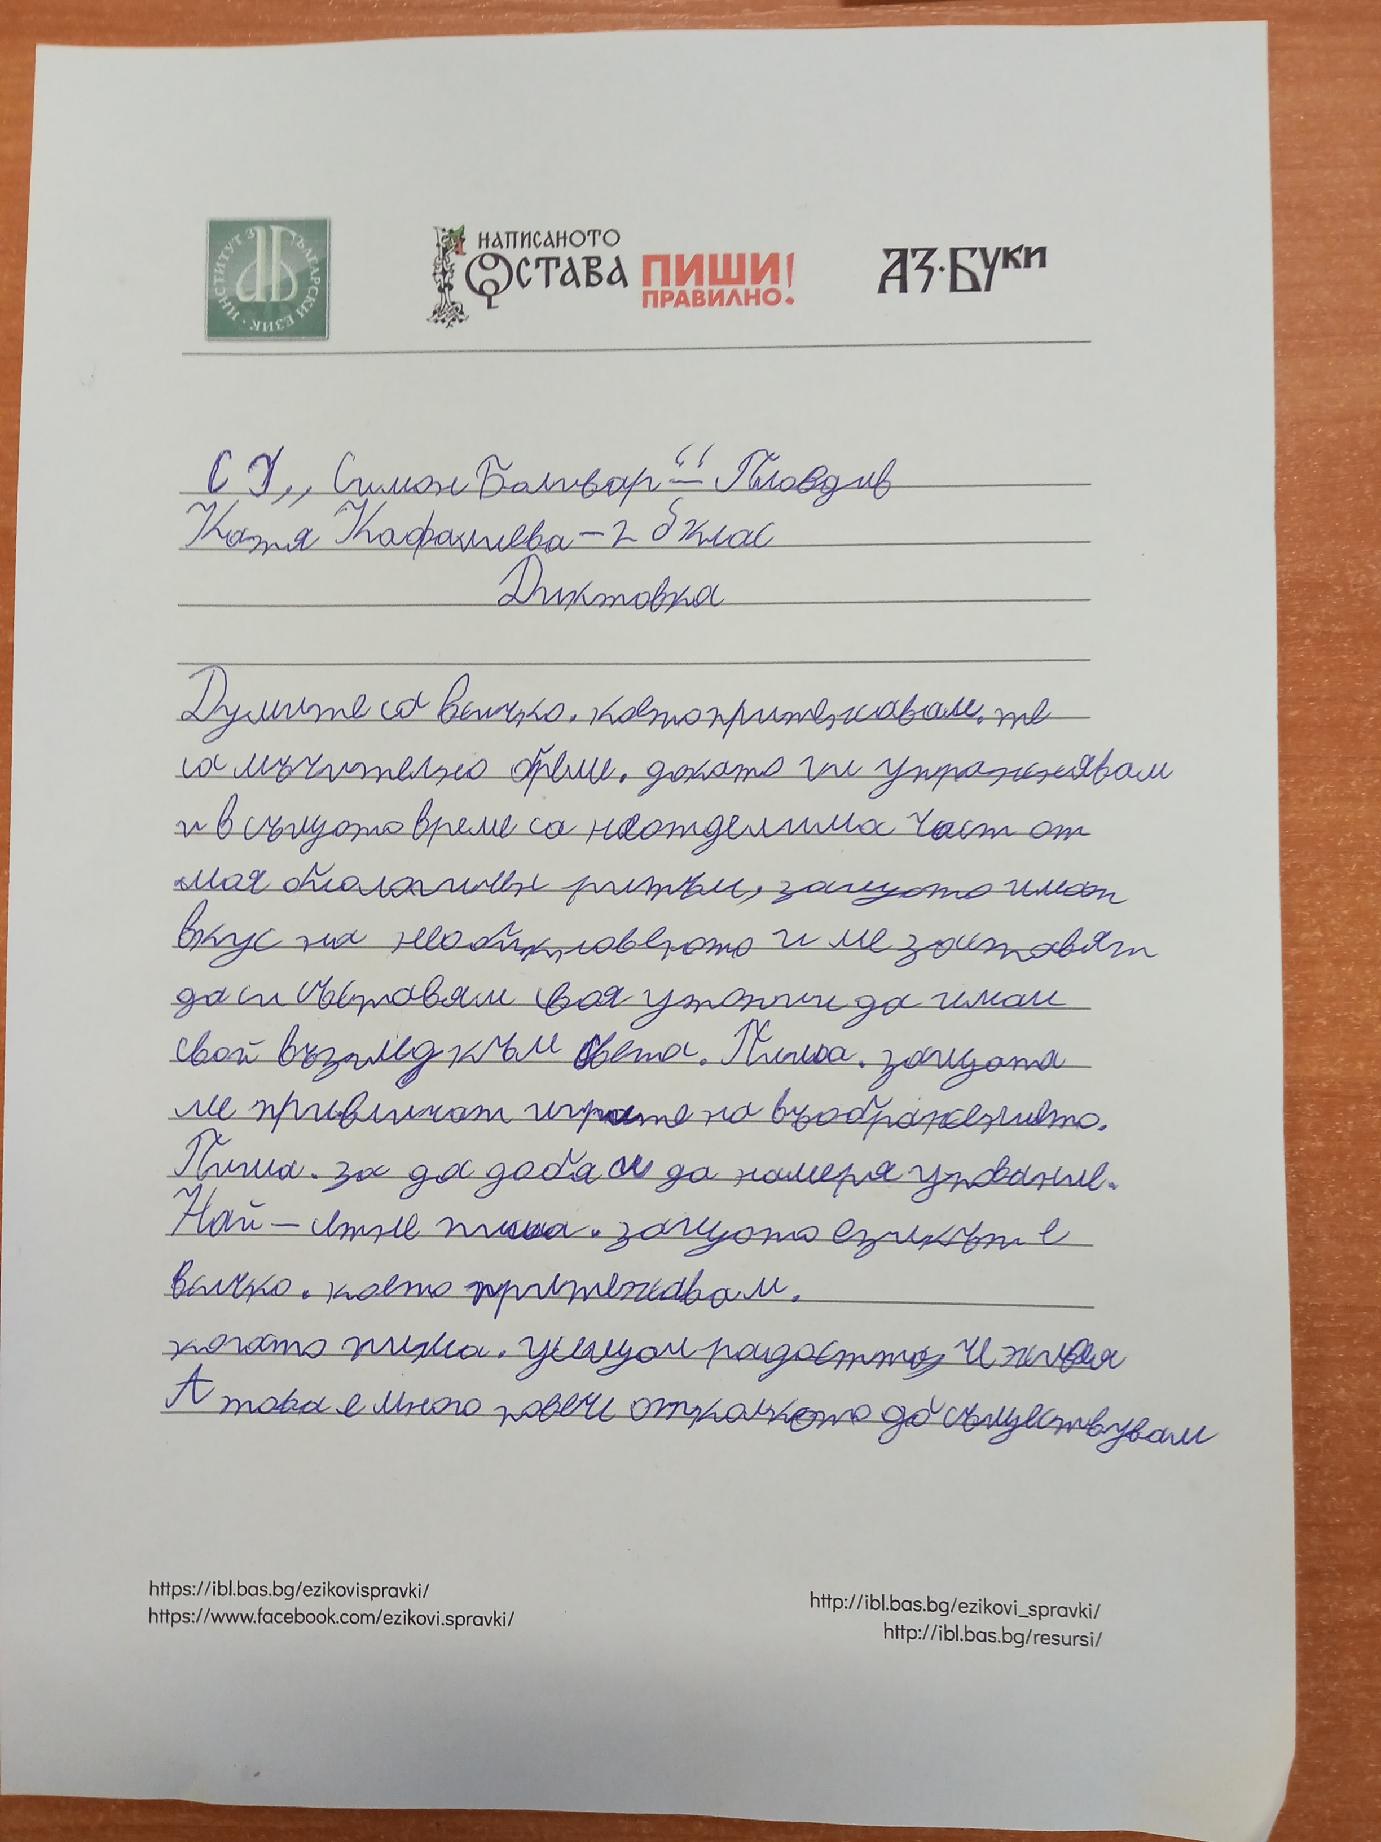 ИНСТИТУТ ЗА БЪЛГАРСКИ ЕЗИК
НАПИСАНОТО
ОСТАВА
ПИШИ!
ПРАВИЛНО.
АЗ·БУКИ
СУ,, Симон Боливар" Пловдив
Катя – 2 б клас
Диктовка
Думите са всичко. което притежавам. те
са мъчително бреме. докато ги упражнявам
и в същото време са неотделима част от
моя биологичен ритъм, защото имат
вкус на необикновеното и ме заставят
да си съставям своя утопии да имам
свой възглед към света. Пиша. защота
ме привличат игрите на въображението.
Пиша. за да добя си да намеря упование.
Най – етне пиша. защото езикът е
всичко. което притежавам.
когато пиша. усещам радостта, че живея
А това е много повече отколкото да съществувам
https://ibl.bas.bg/ezikovispravki/
https://www.facebook.com/ezikovi.spravki/
http://ibl.bas.bg/ezikovi_spravki/
http://ibl.bas.bg/resursi/